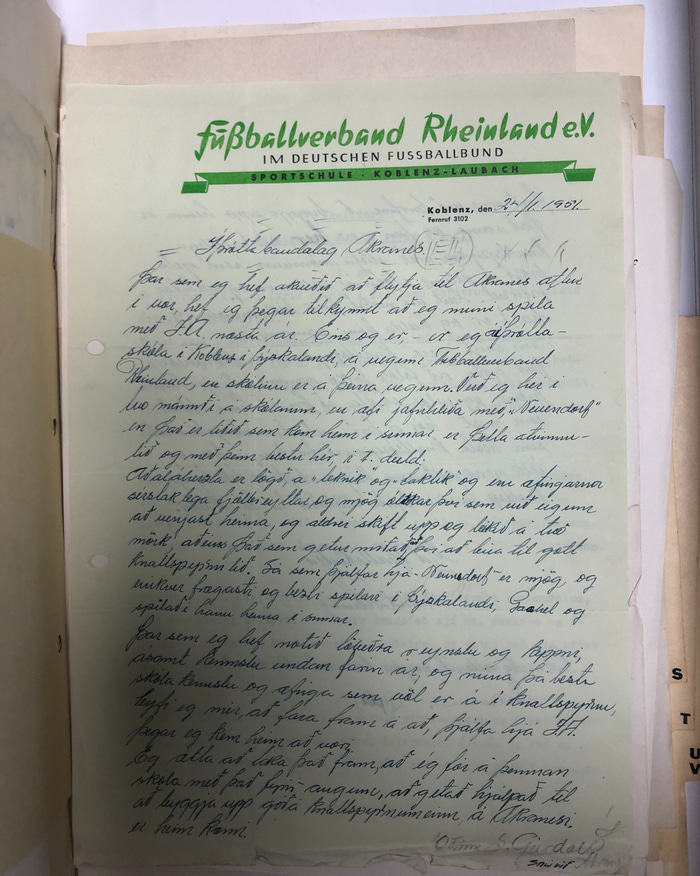 Fußballverband Rheinland e.V.
IM DEUTSCHEN FUSSBALLBUND
SPORTSCHULE · KOBLENZ-LAUBACH
Koblenz, den 1951.
Fernruf 3102
Íþróttabandalag Akraness
Þar sem eg hef ákveðið að flytja til Akranes aftur
i vor, hef ig þegar tilkynnt að eg muni spila
með Í.A. næsta ár. Eins og er, - er eg á íþrótta-
skóla i Koblenz i Þýskalandi, á vegum Fusballverband
Rheinland, en skólinn er á þeirra vegum. Verð eg her i
tvo mánuði á skólanum, en æfi jafnhliða með "Neuendorf"
en það er liðið sem kom heim i sumar, er þetta atvinnu-
lið og með þeim bestu hér, i 1. deild.
Aðaláhersla er lögð, a "teknik" og "taktik" og eru æfingarnar
serstaklega fjölbreyttar, og mjög ólíkar þvi sem við eigum
að venjast heima, og aldrei skift upp og leikið á tvö
mörk, aðeins það sem getur miðað við þvi að leia til gott
knattspyrnulið. Sá sem þjálfar hjá "Neuendorf" er mjög, og
einhver frægasti og bezti spilari i Þýskalandi, Gauchel og
spilaði hann heima i sumar.
Þar sem eg hef notið reynslu og keppni,
ásamt kennslu undan farin ár, og núna þá bestu
skóla kennslu og æfinga sem völ er á i knattspyrnu,
leyfi eg mér, að fara fram á að, þjálfa hjá Í.A.
þegar eg kem heim að vori.
Eg ætla að taka það fram, að ég fór á þennan
skóla með það fyrir augum, að getað hjálpað til
að byggja upp góða knattspyrnumenn á Akranesi.
er heim kæmi.